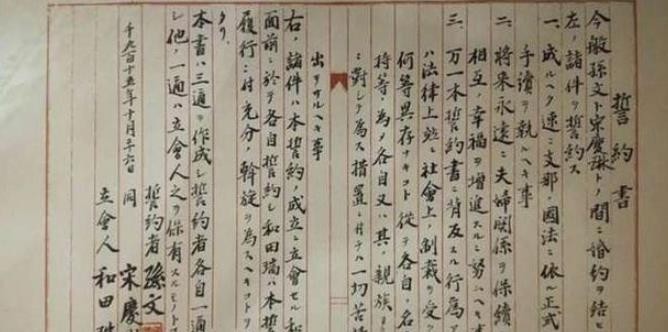 誓約書
今般孫文ト宋慶琳トノ間ニ婚約ヲ結
左ノ諸件ヲ誓約ス
一、成ルヘク速ニ支那ノ國法ニ依ル正式
手續ヲ執ルヘキ事
二、将来永遠ニ夫婦関係ヲ保續
相互ノ幸福ヲ増進スルニ努ムヘキ
三、万一本誓約書ニ背反スル行為
ハ法律上並ニ社会上ノ制裁ヲ受ク
何等異存ナキコト從テ各自ノ名
持等ノ為メ各自又ハ其ノ親族ヨ
ニ對シテ為ス措置ニ付テハ一切苦情
出サヾルヘキ事
右ノ諸件ハ本誓約ノ成立ニ立會セル和
面前ニ於テ各自誓約シ和田瑞ハ本誓
履行ニ付充分ノ斡旋ヲ為スヘキコト
タリ
本書ハ三通ヲ作成シ誓約者各自一通
シ他ノ一通ハ立會人之ヲ保有スルモノトス
千九百十五年十月二十六日
誓約者 孫文
同 宋慶
立會人 和田